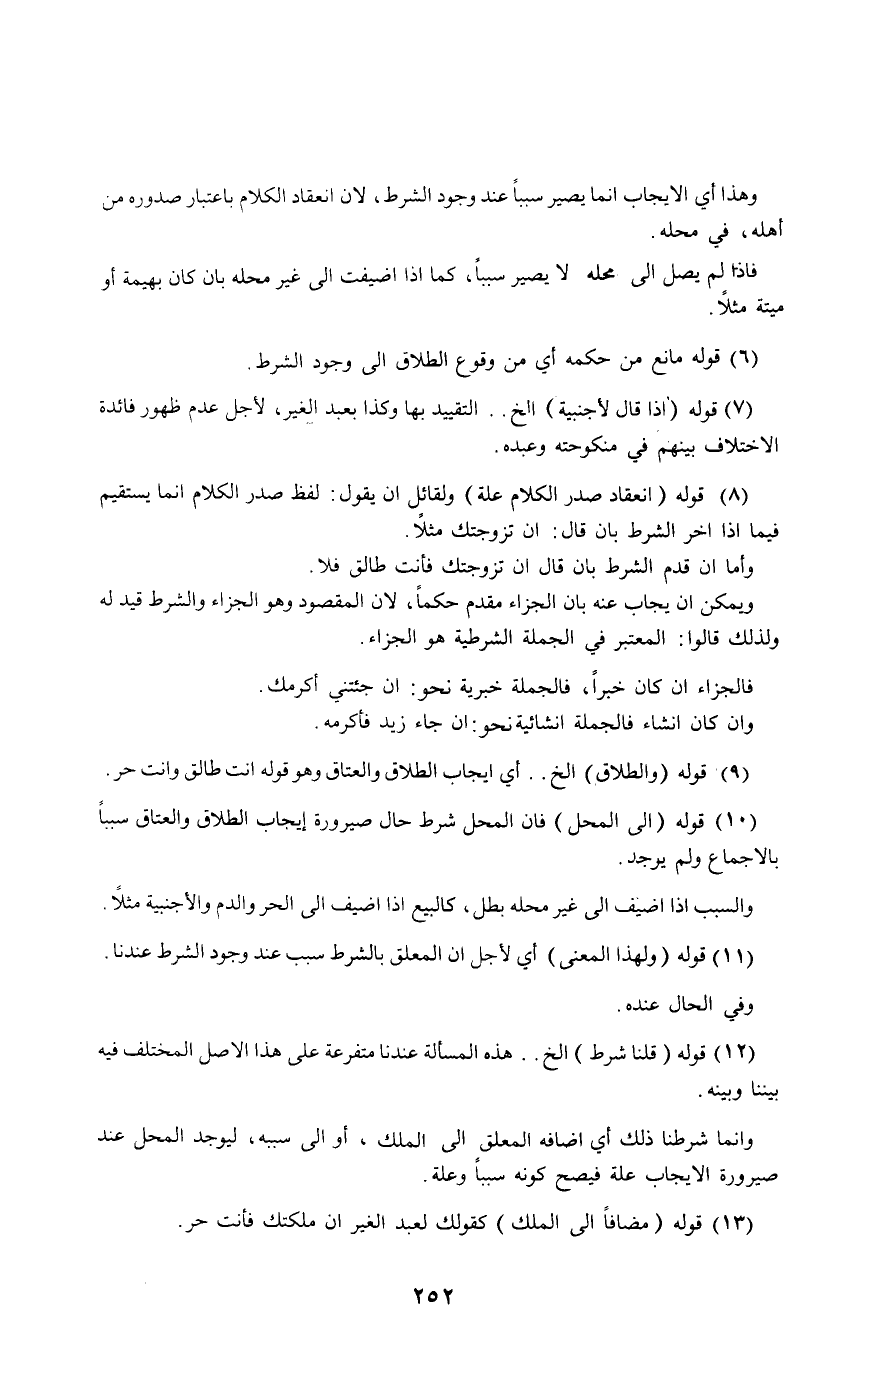 وهذا أي الايجاب انما يصير سبباً عند وجود الشرط، لان انعقاد الكلام باعتبار صدوره من
أهله، في محله.
فاذا لم يصل الى محله لا يصير سبباً، كما اذا اضيفت الى غير محله بان كان بهيمة أو
ميتة مثلاً.
(٦) قوله مانع من حكمه أي من وقوع الطلاق الى وجود الشرط.
(٧) قوله (اذا قال لأجنبية) الخ.. التقييد بها وكذا بعبد الغير، لأجل عدم ظهور فائدة
الاختلاف بينهم في منكوحته وعبده.
(٨) قوله (انعقاد صدر الكلام علة) ولقائل ان يقول: لفظ صدر الكلام انما يستقيم
فيما اذا اخر الشرط بان قال: ان تزوجتك مثلاً.
وأما ان قدم الشرط بان قال ان تزوجتك فأنت طالق فلا.
ويمكن ان يجاب عنه بان الجزاء مقدم حكماً، لان المقصود وهو الجزاء والشرط قيد له
ولذلك قالوا: المعتبر في الجملة الشرطية هو الجزاء.
فالجزاء ان كان خبراً، فالجملة خبرية نحو: ان جئتني أكرمك.
وان كان انشاء فالجملة انشائية نحو: ان جاء زيد فأكرمه.
(٩) قوله (والطلاق) الخ.. أي ايجاب الطلاق والعتاق وهو قوله انت طالق وانت حر.
(١٠) قوله (الى المحل) فان المحل شرط حال صيرورة إيجاب الطلاق والعتاق سبباً
بالاجماع ولم يوجد.
والسبب اذا اضيف الى غير محله بطل، كالبيع اذا اضيف الى الحر والدم والأجنبية مثلاً.
(١١) قوله (ولهذا المعنى) أي لأجل ان المعلق بالشرط سبب عند وجود الشرط عندنا.
وفي الحال عنده.
(١٢) قوله (قلنا شرط) الخ.. هذه المسألة عندنا متفرعة على هذا الاصل المختلف فيه
بيننا وبينه.
وانما شرطنا ذلك أي اضافه المعلق الى الملك، أو الى سببه، ليوجد المحل عند
صيرورة الايجاب علة فيصح كونه سبباً وعلة.
(١٣) قوله (مضافاً الى الملك) كقولك لعبد الغير ان ملكتك فأنت حر.
٢٥٢